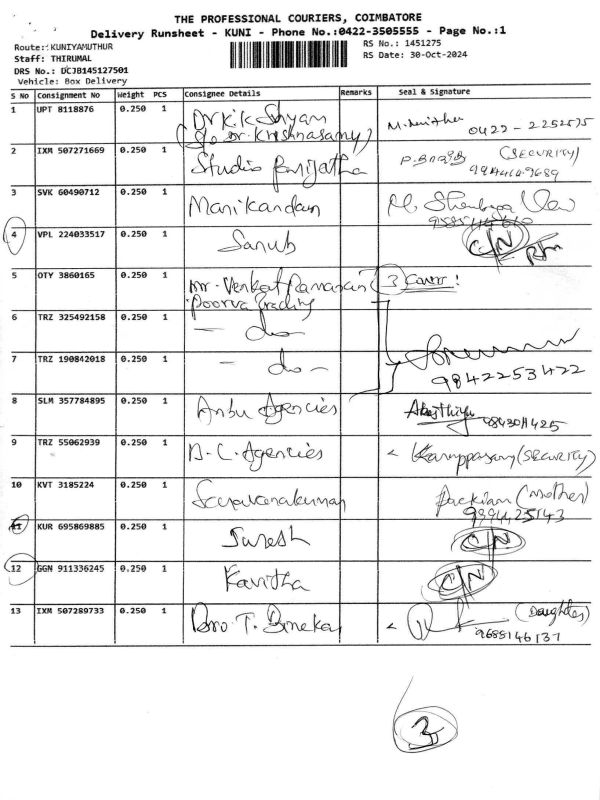 THE PROFESSIONAL COURIERS, COIMBATORE
Delivery Runsheet - KUNI - Phone No.:0422-3505555 - Page No.:1
Route: KUNIYAMUTHUR
RS No.: 1451275
Staff: THIRUMAL
RS Date: 30-Oct-2024
DRS No.: DCJB145127501
Vehicle: Box Delivery
S No Consignment No Weight PCS Consignee Details Remarks Seal & Signature
1 UPT 8118876 0.250 1 Dr K.K Shyam
0422 - 2252575
2 IXM 507271669 0.250 1 Studio Parijatha (SECURITY)
3 SVK 60490712 0.250 1 Manikandan
4 VPL 224033517 0.250 1 C/N
5 OTY 3860165 0.250 1 Mr. Venkat Ramanan 3 Covers!
Poorva Trading
6 TRZ 325492158 0.250 1 - do -
7 TRZ 190842018 0.250 1 - do -
9842253422
8 SLM 357784895 0.250 1 Anbu Agencies
9 TRZ 55062939 0.250 1 A.C. Agencies Karuppasamy (SECURITY)
10 KVT 3185224 0.250 1 Packiam (mother)
11 KUR 695869885 0.250 1 Suresh C/N
12 GGN 911336245 0.250 1 Kavitha C/N
13 IXM 507289733 0.250 1 Bro. T. (Daughter)
9688146137
3